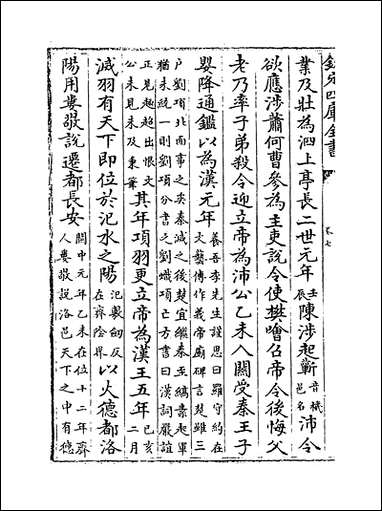 欽定四庫全書 卷七
業及壯為泗上亭長二世元年壬辰陳涉起蘄音機邑名沛令
欲應涉蕭何曹參為主吏說令使樊噲召帝令後悔父
老乃率子弟殺令迎立帝為沛公乙未入關受秦王子
嬰降通鑑以為漢元年養吾李先生謹思曰羅守約在
文藝傳作義帝廟碑言楚雖三
户劉項北面事之矣秦滅之後楚宜繼秦至縞素起軍
猶未統一則劉項分書之劉項亡方書曰漢詞嚴誼
正見超出恨文
公未見未及秉筆其年項羽更立帝為漢王五年己亥二月
滅羽有天下即位於汜水之陽汜製劒反
在齊陰界以火德都洛
陽用婁敬說遷都長安關中元年乙未在位十二年齊
人婁敬說洛邑天下之中有德